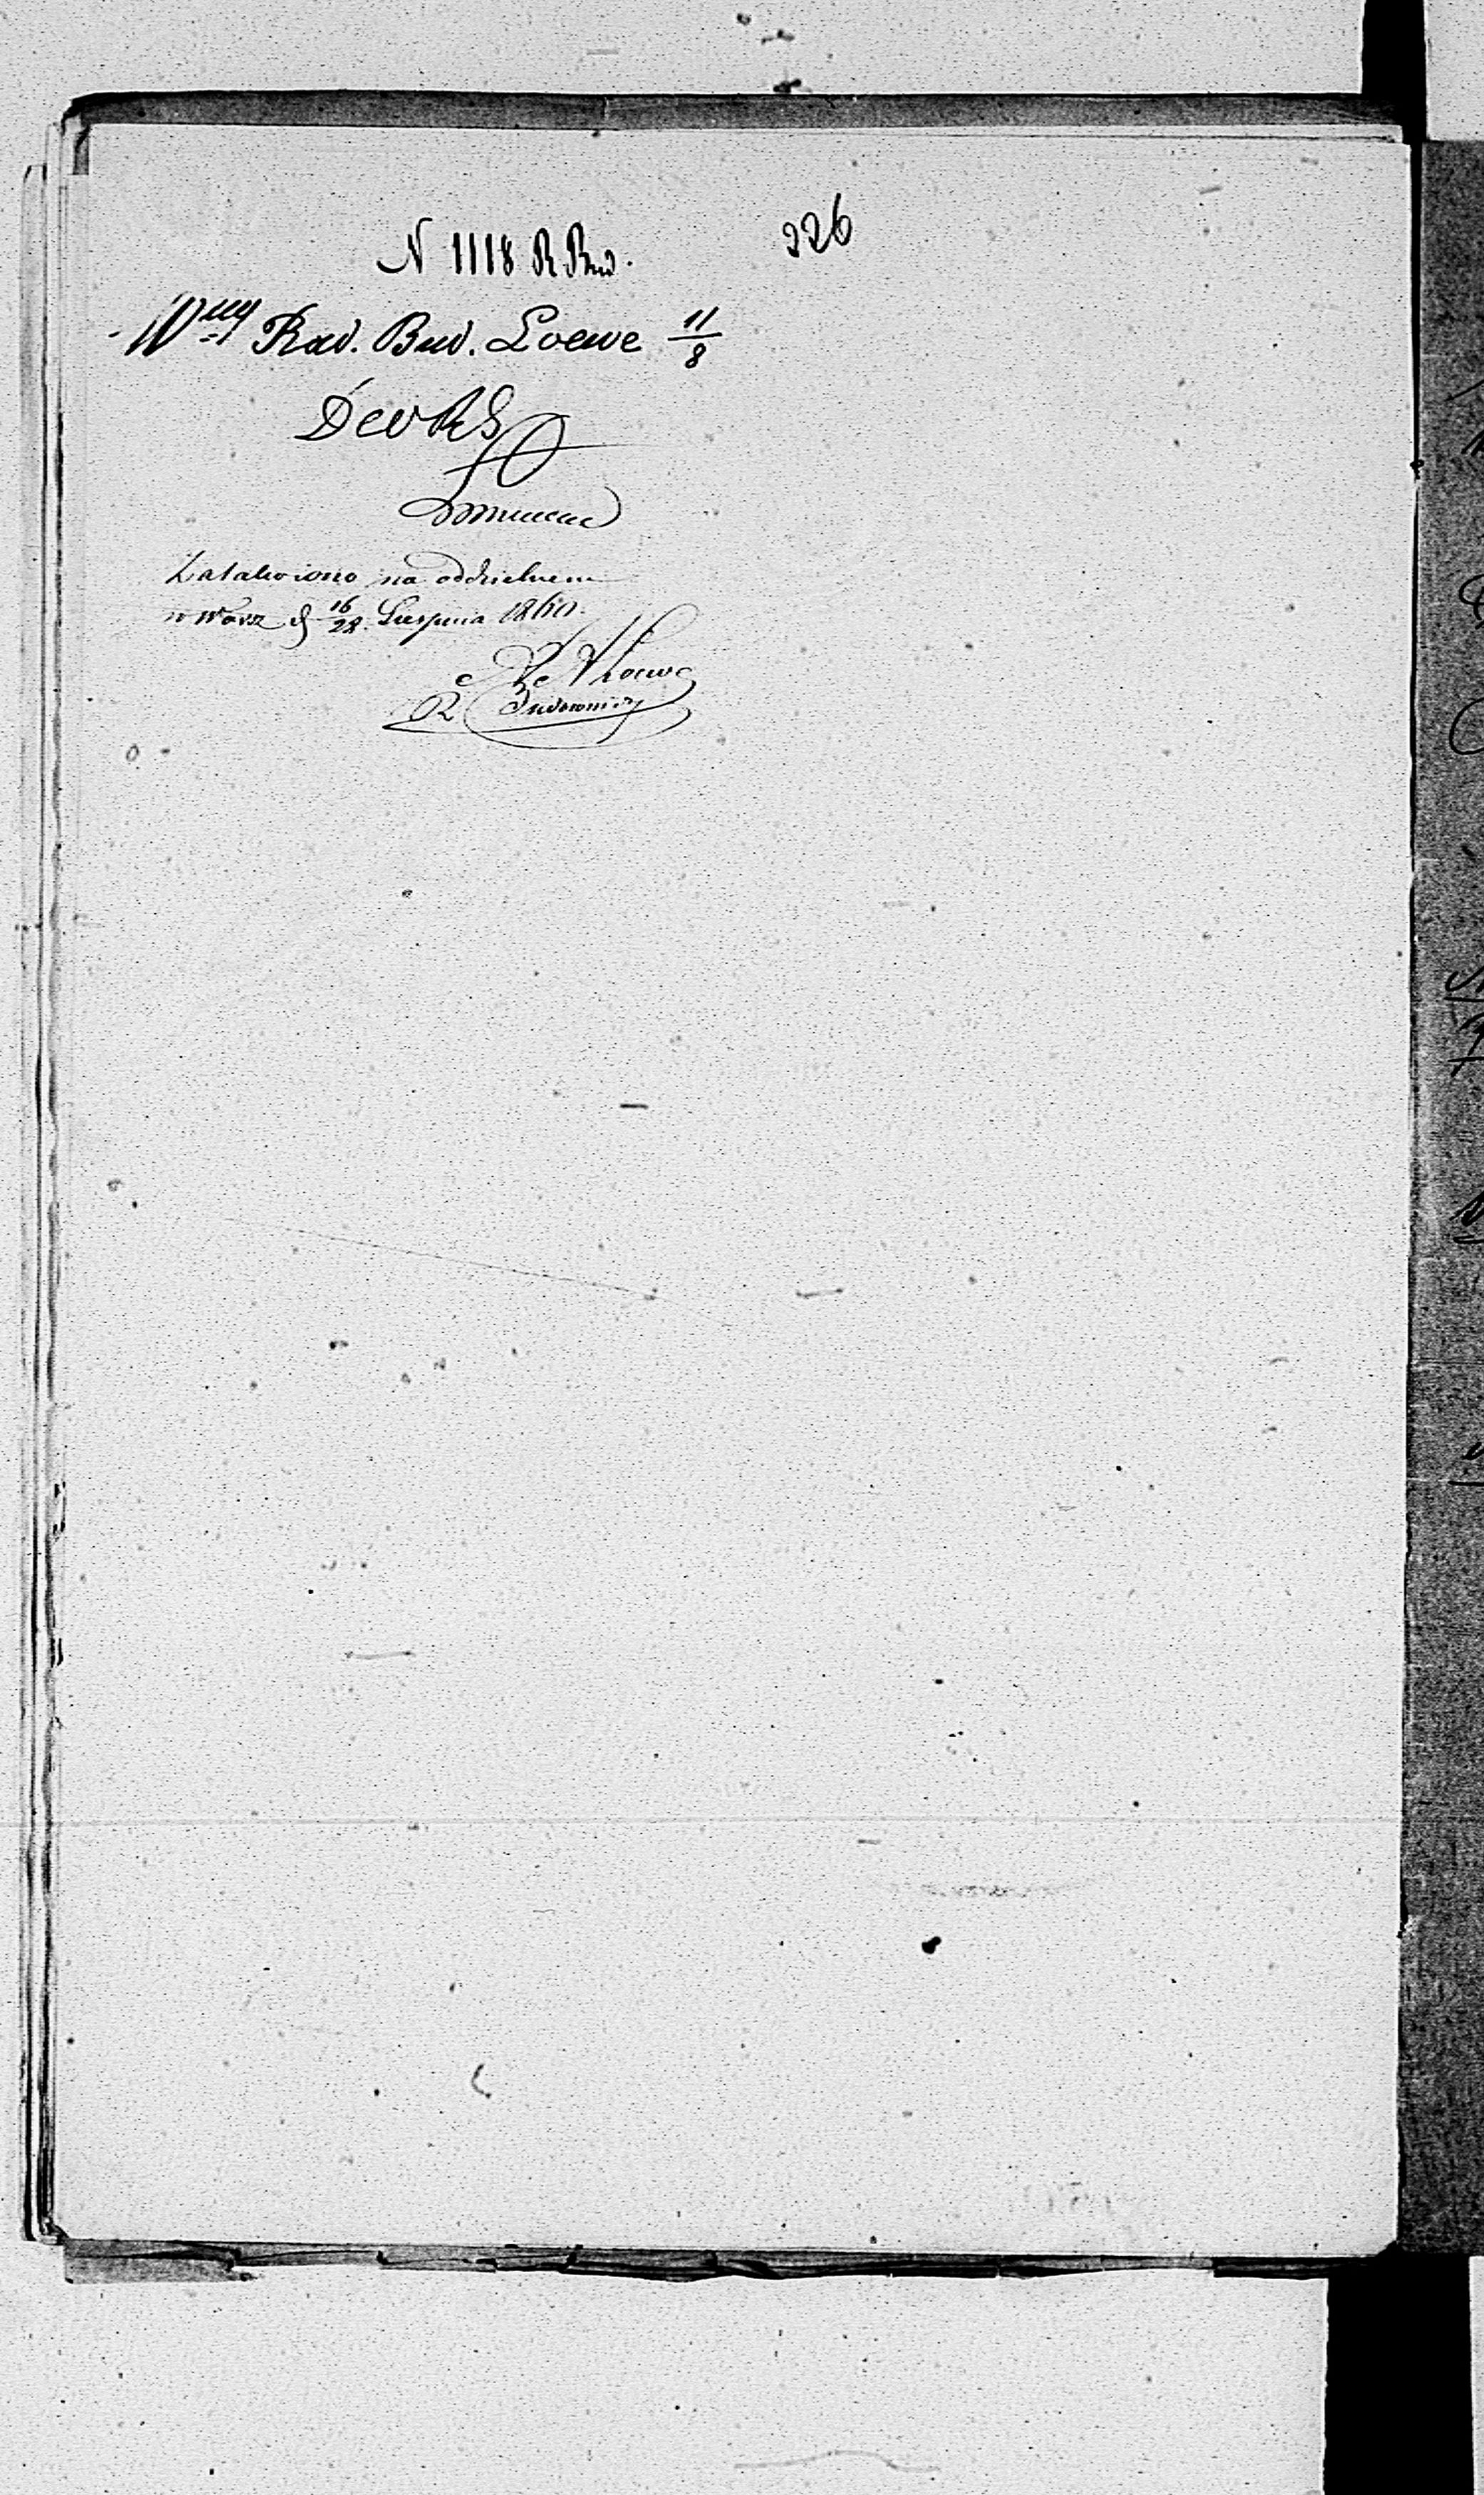 226
N 1118 R Bud.
Wny Rad. Bud. Loewe 11/8
Załatwiono na oddzielnem
w Warz d 16/28. Sierpnia 1860.
Loewe
R Budowniczy